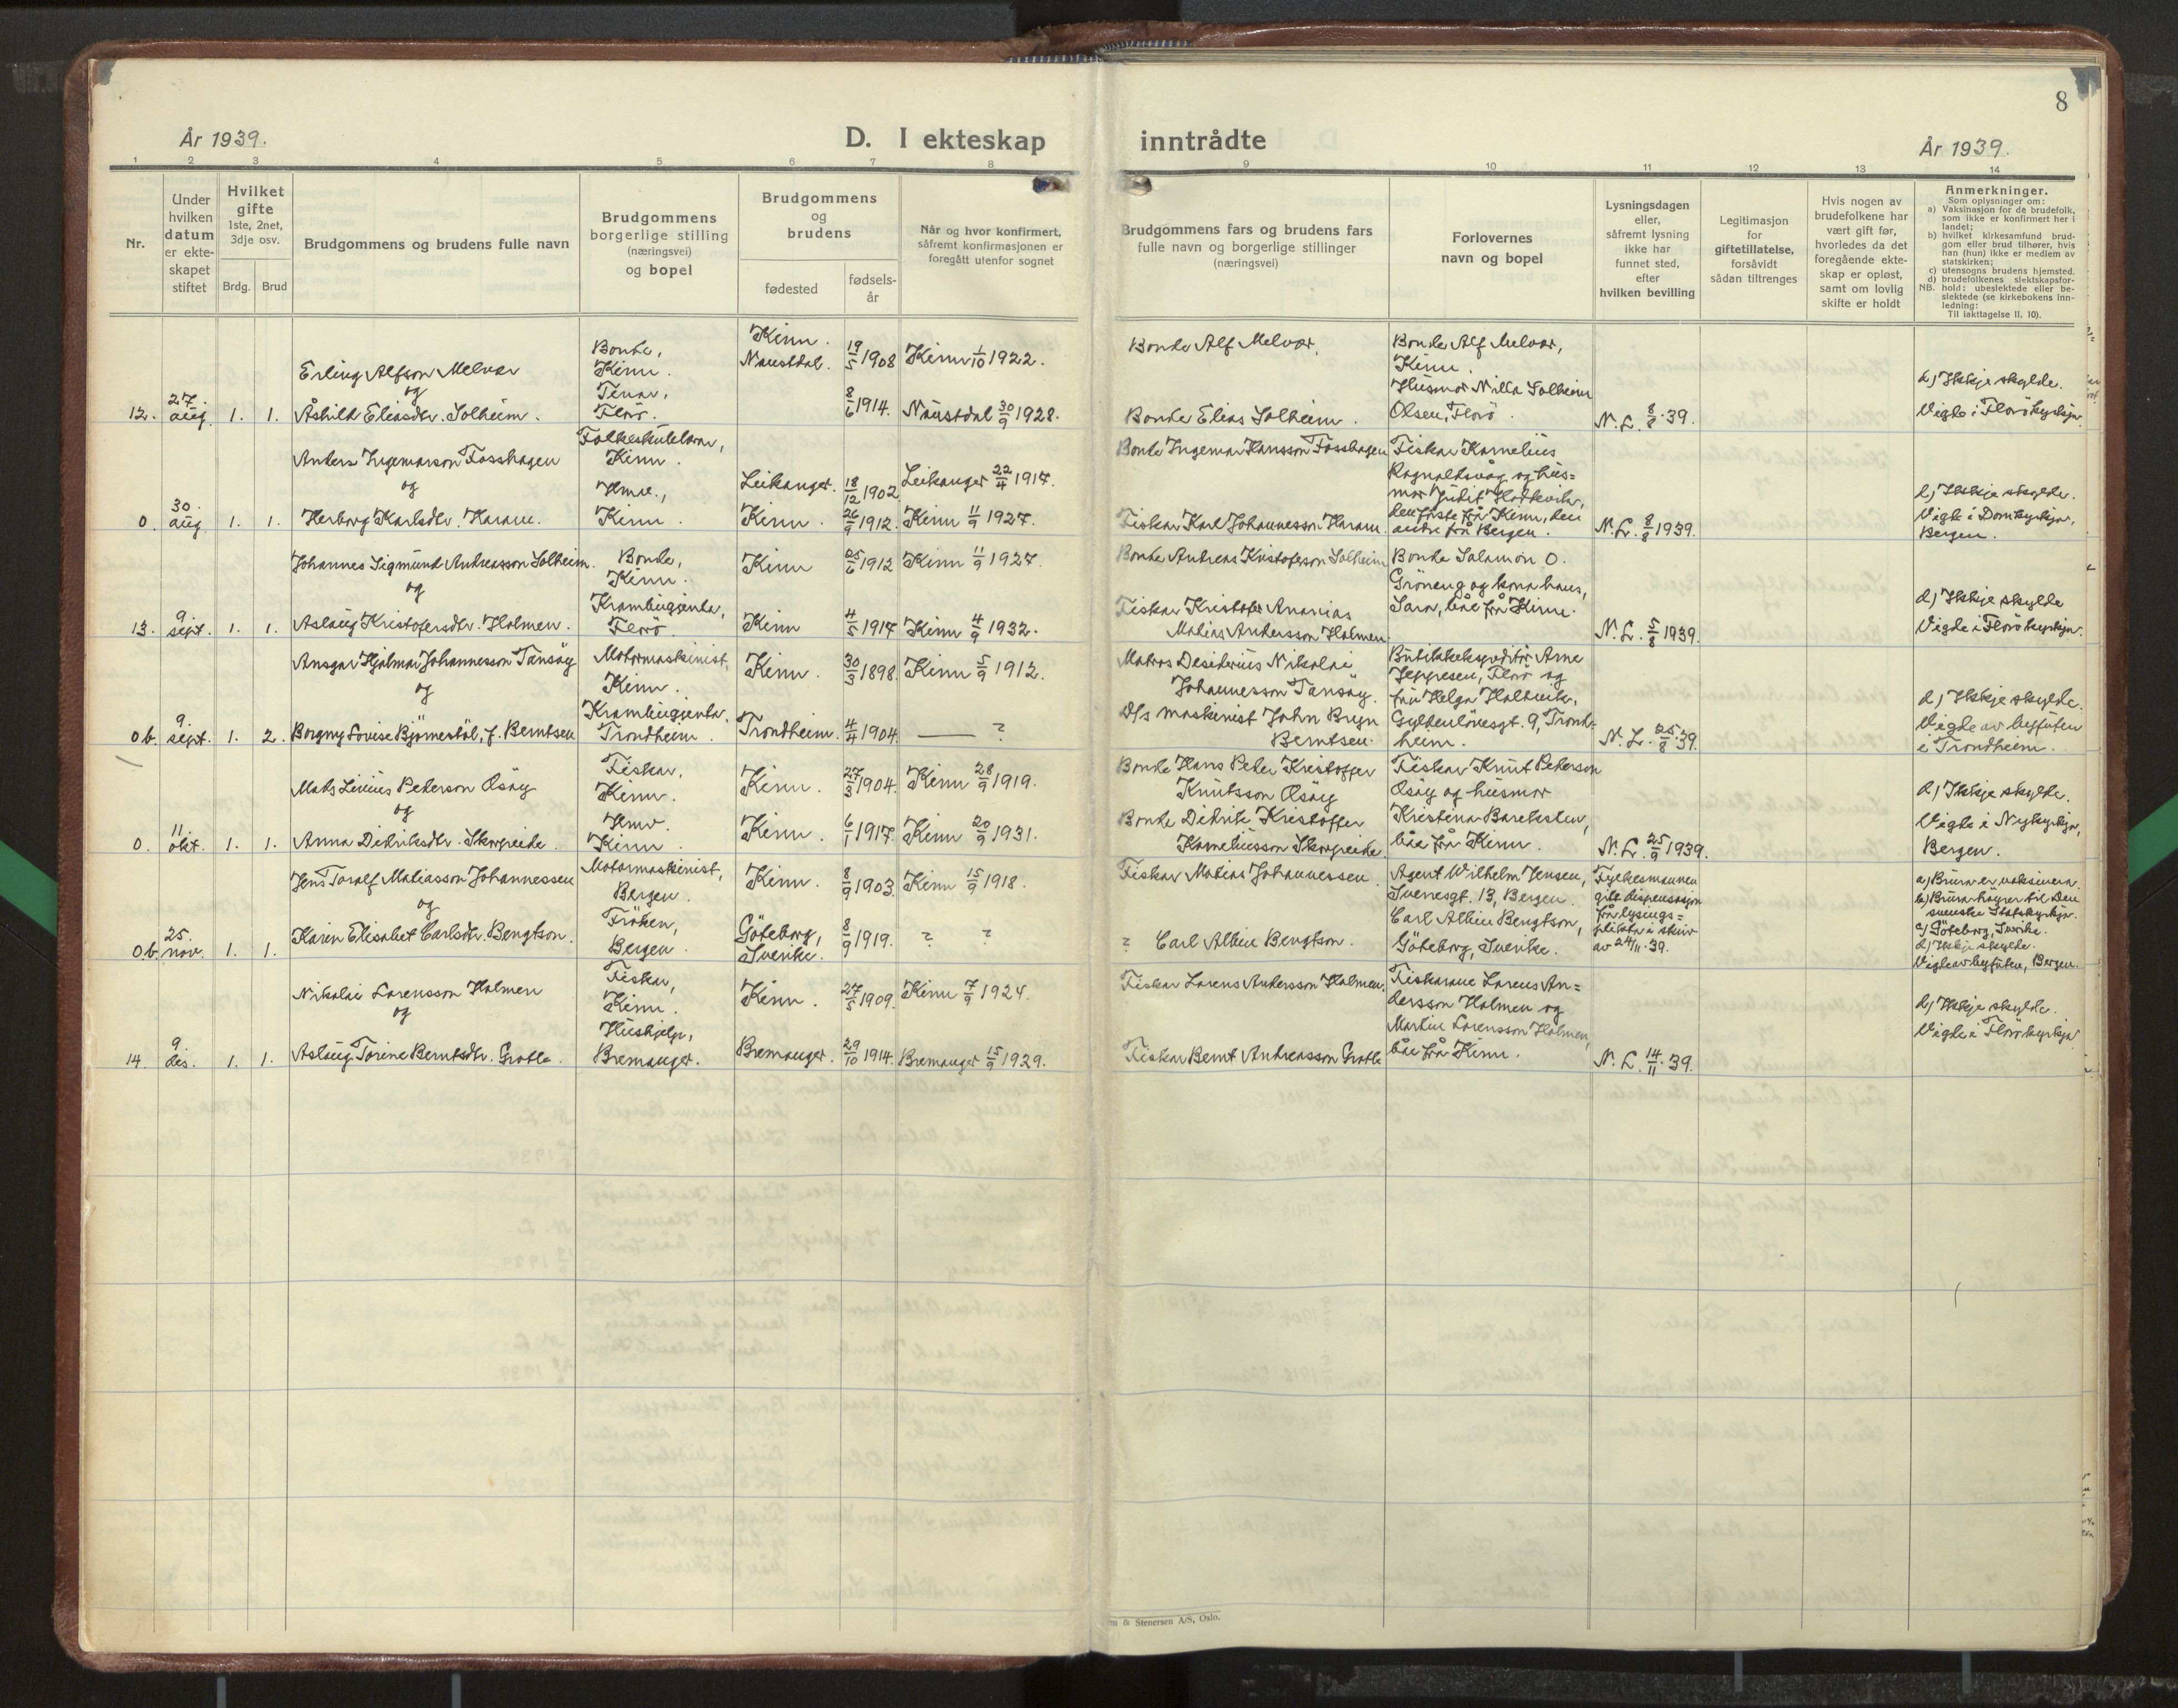 8
År 1939.
D. I ekteskap inntrådte
År 1939.
1 2 3 4 5 6 7 8 9 10 11 12 13 14
Nr.
Under hvilken datum er ekteskapet stiftet
Hvilket gifte 1ste, 2net, 3dje osv.
Brdg. Brud
Brudgommens og brudens fulle navn
Brudgommens borgerlige stilling (næringsvei) og bopel
Brudgommens og brudens
fødested
fødsels-år
Når og hvor konfirmert, såfremt konfirmasjonen er foregått utenfor sognet
Brudgommens fars og brudens fars fulle navn og borgerlige stillinger (næringsvei)
Forlovernes navn og bopel
Lysningsdagen eller, såfremt lysning ikke har funnet sted, efter hvilken bevilling
Legitimasjon for giftetillatelse, forsåvidt sådan tiltrenges
Hvis nogen av brudefolkene har vært gift før, hvorledes da det foregående ekteskap er opløst, samt om lovlig skifte er holdt
Anmerkninger.
Som oplysninger om:
a) Vaksinasjon for de brudefolk, som ikke er konfirmert her i landet;
b) hvilket kirkesamfund brudgom eller brud tilhører, hvis han (hun) ikke er medlem av statskirken;
c) utensogns brudens hjemsted.
d) brudefolkenes slektskapsforhold: ubeslektede eller beslektede (se kirkebokens innledning:
NB. Til iakttagelse II. 10).
12. 27. aug. 1. 1.
Erling Alfson Melvær
og
Åshild Eliasdtr. Solheim.
Bonde, Kinn.
Tenar, Florö.
Kinn.
Naustdal.
19/5 1908
8/6 1914.
Kinn 1/10 1922.
Naustdal 30/9 1928.
Bonde Alf Melvær.
Bonde Elias Solheim.
Bonde Alf Melvær, Kinn.
Husmor Milla Solheim Olsen, Florö.
N. L. 8/8 39.
d) Ikkje skylde.
Vigde i Florö kyrkja.
0. 30. aug. 1. 1.
Anders Ingemarson Fosshagen
og
Herborg Karlsdtr. Haram.
Folkeskulelærar, Kinn.
Hmv., Kinn.
Leikanger.
Kinn.
18/12 1902
26/9 1912.
Leikanger 22/4 1917.
Kinn 11/9 1927.
Bonde Ingemar Hansson Fosshagen
Fiskar Karl Johannesson Haram.
Fiskar Kornelius
Rognaldsvåg og hus=
mor Judit Hordvik,
den fyrste frå Kinn, den
andre frå Bergen.
N. L. 8/8 1939.
d) Ikkje skylde.
Vigde i Domkyrkja,
Bergen.
13. 9. sept. 1. 1.
Johannes Sigmund Andreasson Solheim.
og
Aslaug Kristofersdtr. Holmen.
Bonde, Kinn.
Krambugjenta, Florö.
Kinn
Kinn
25/6 1912
4/5 1917
Kinn 11/9 1927.
Kinn 4/9 1932.
Bonde Andreas Kristoferson Solheim
Fiskar Kristofer Ananias
Matias Andersson Holmen.
Bonde Salamon O.
Gröneng og kona hans,
Sara, båe frå Kinn.
N. L. 5/8 1939.
d) Ikkje skylde
Vigde i Florö kyrkja.
0b. 9. sept. 1. 2.
Ansgar Hjalmar Johannesson Tansöy
og
Borgny Lovise Björnestöl, f. Berntsen
Motormaskinist, Kinn.
Krambugjenta. Trondheim.
Kinn.
Trondheim.
30/3 1898.
4/4 1904.
Kinn 5/9 1912.
— ?
Matros Desiderius Nikolai
Johannesson Tansöy.
D/s maskinist John Bryn
Berntsen.
Butikkekspeditör Arne
Jeppesen, Florö og
fru Helga Halbvik,
Gyldenlövesgt. 9, Trond-
heim.
N. L. 25/8 39.
d) Ikkje skylde.
Vigde av byfuten
i Trondheim.
0. 11 okt. 1. 1.
Mats Linius Peterson Osöy
og
Anna Didriksdtr. Skorpeide.
Fiskar, Kinn.
Hmv. Kinn.
Kinn.
Kinn.
27/3 1904.
6/1 1917.
Kinn 28/9 1919.
Kinn 20/9 1931.
Bonde Hans Peter Kristoffer
Knutsson Osöy
Bonde Didrik Kristoffer
Korneliusson Skorpeide.
Fiskar Knut Peterson
Osöy og husmor
Kristina Bareksten,
båe frå Kinn.
N. L. 25/9 1939.
d) Ikkje skylde.
Vigde i Nykyrkja,
Bergen.
0b. 25. nov. 1. 1.
Jens Toralf Matiasson Johannessen
og
Karin Elisabet Carlsdtr. Bengtson.
Motormaskinist, Bergen.
Fröken, Bergen.
Kinn.
Göteborg, Sverike.
8/9 1903.
8/9 1919.
Kinn 15/9 1918.
? ?
Fiskar Matias Johannessen.
? Carl Albin Bengtson.
Agent Wilhelm Jensen,
Sveresgt. 13, Bergen.
Carl Albin Bengtson,
Göteborg, Sverike.
Fylkesmannen
gitt dispensasjon
frå lysings=
plikta i skriv
av 24/11 39.
a) Brura er vaksinera.
b) Brura höyrer til Den
svenske Statskyrkja.
c) Göteborg, Sverike.
d) Ikkje skylde.
Vigde av byfuten, Bergen.
14. 9. des. 1. 1.
Nikolai Lorensson Holmen
og
Aslaug Torine Berntsdtr. Grotle.
Fiskar, Kinn.
Hushjelp, Bremanger.
Kinn.
Bremanger.
27/5 1909.
29/10 1914.
Kinn 7/9 1924.
Bremanger 15/9 1929.
Fiskar Lorens Andersson Holmen.
Fiskar Bernt Andreasson Grotle
Fiskarane Lorens An=
dersson Holmen og
Martin Lorensson Holmen,
båe frå Kinn.
N. L. 14/11 39.
d) Ikkje skylde.
Vigde i Florö kyrkja
& Stenersen A/S, Oslo.